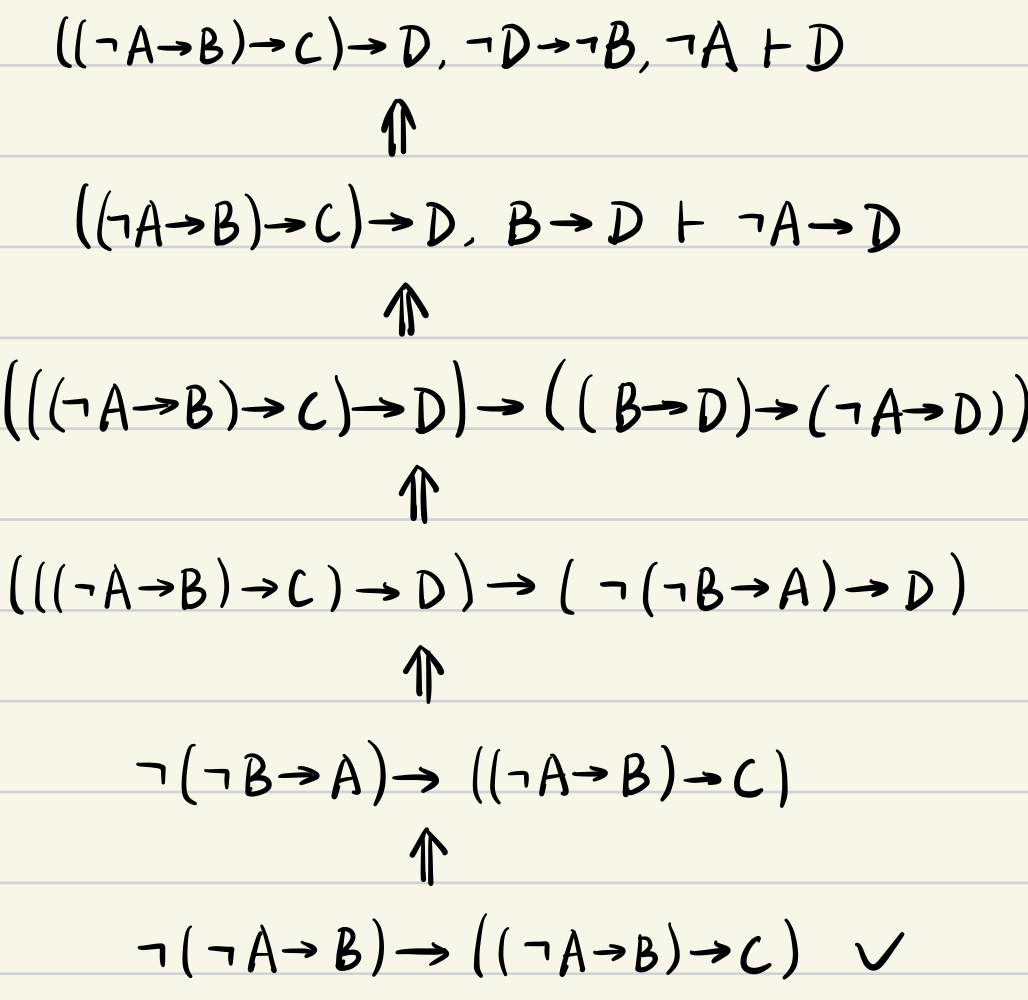 ((¬A→B)→C)→D, ¬D→¬B, ¬A ⊢ D
⇑
((¬A→B)→C)→D, B→D ⊢ ¬A→D
⇑
(((¬A→B)→C)→D)→((B→D)→(¬A→D))
⇑
(((¬A→B)→C)→D)→(¬(¬B→A)→D)
⇑
¬(¬B→A)→((¬A→B)→C)
⇑
¬(¬A→B)→((¬A→B)→C) ✓